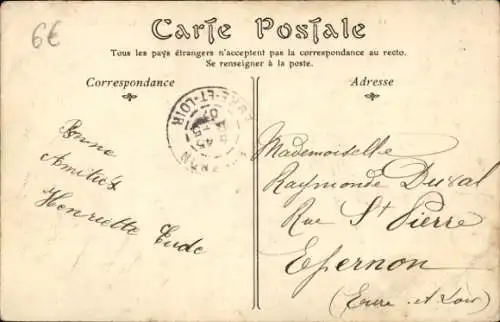 6€
Carte Postale
Tous les pays étrangers n'acceptent pas la correspondance au recto.
Se renseigner à la poste.
Correspondance
Adresse
EURE-ET-LOIR
Bonne
Amitiés
Henriette Eude
Mademoiselle
Raymonde Duval
Rue St Pierre
Epernon
(Eure et Loir)